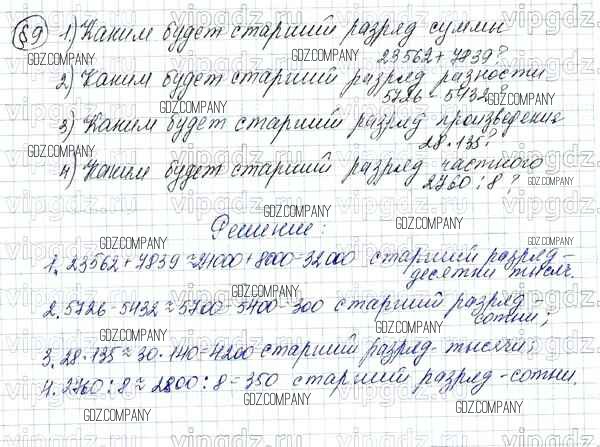 §9 1) Каким будет старший разряд суммы
23562+7839?
2) Каким будет старший разряд разности
5726-5432?
3) Каким будет старший разряд произведения
28·135?
4) Каким будет старший разряд частного
2760:8?
Решение:
1. 23562+7839≈24000+8000=32000 старший разряд -
десятки тысяч.
2. 5726-5432≈5700-5400=300 старший разряд -
сотни;
3. 28·135≈30·140=4200 старший разряд - тысячи;
4. 2760:8≈2800:8=350 старший разряд - сотни.